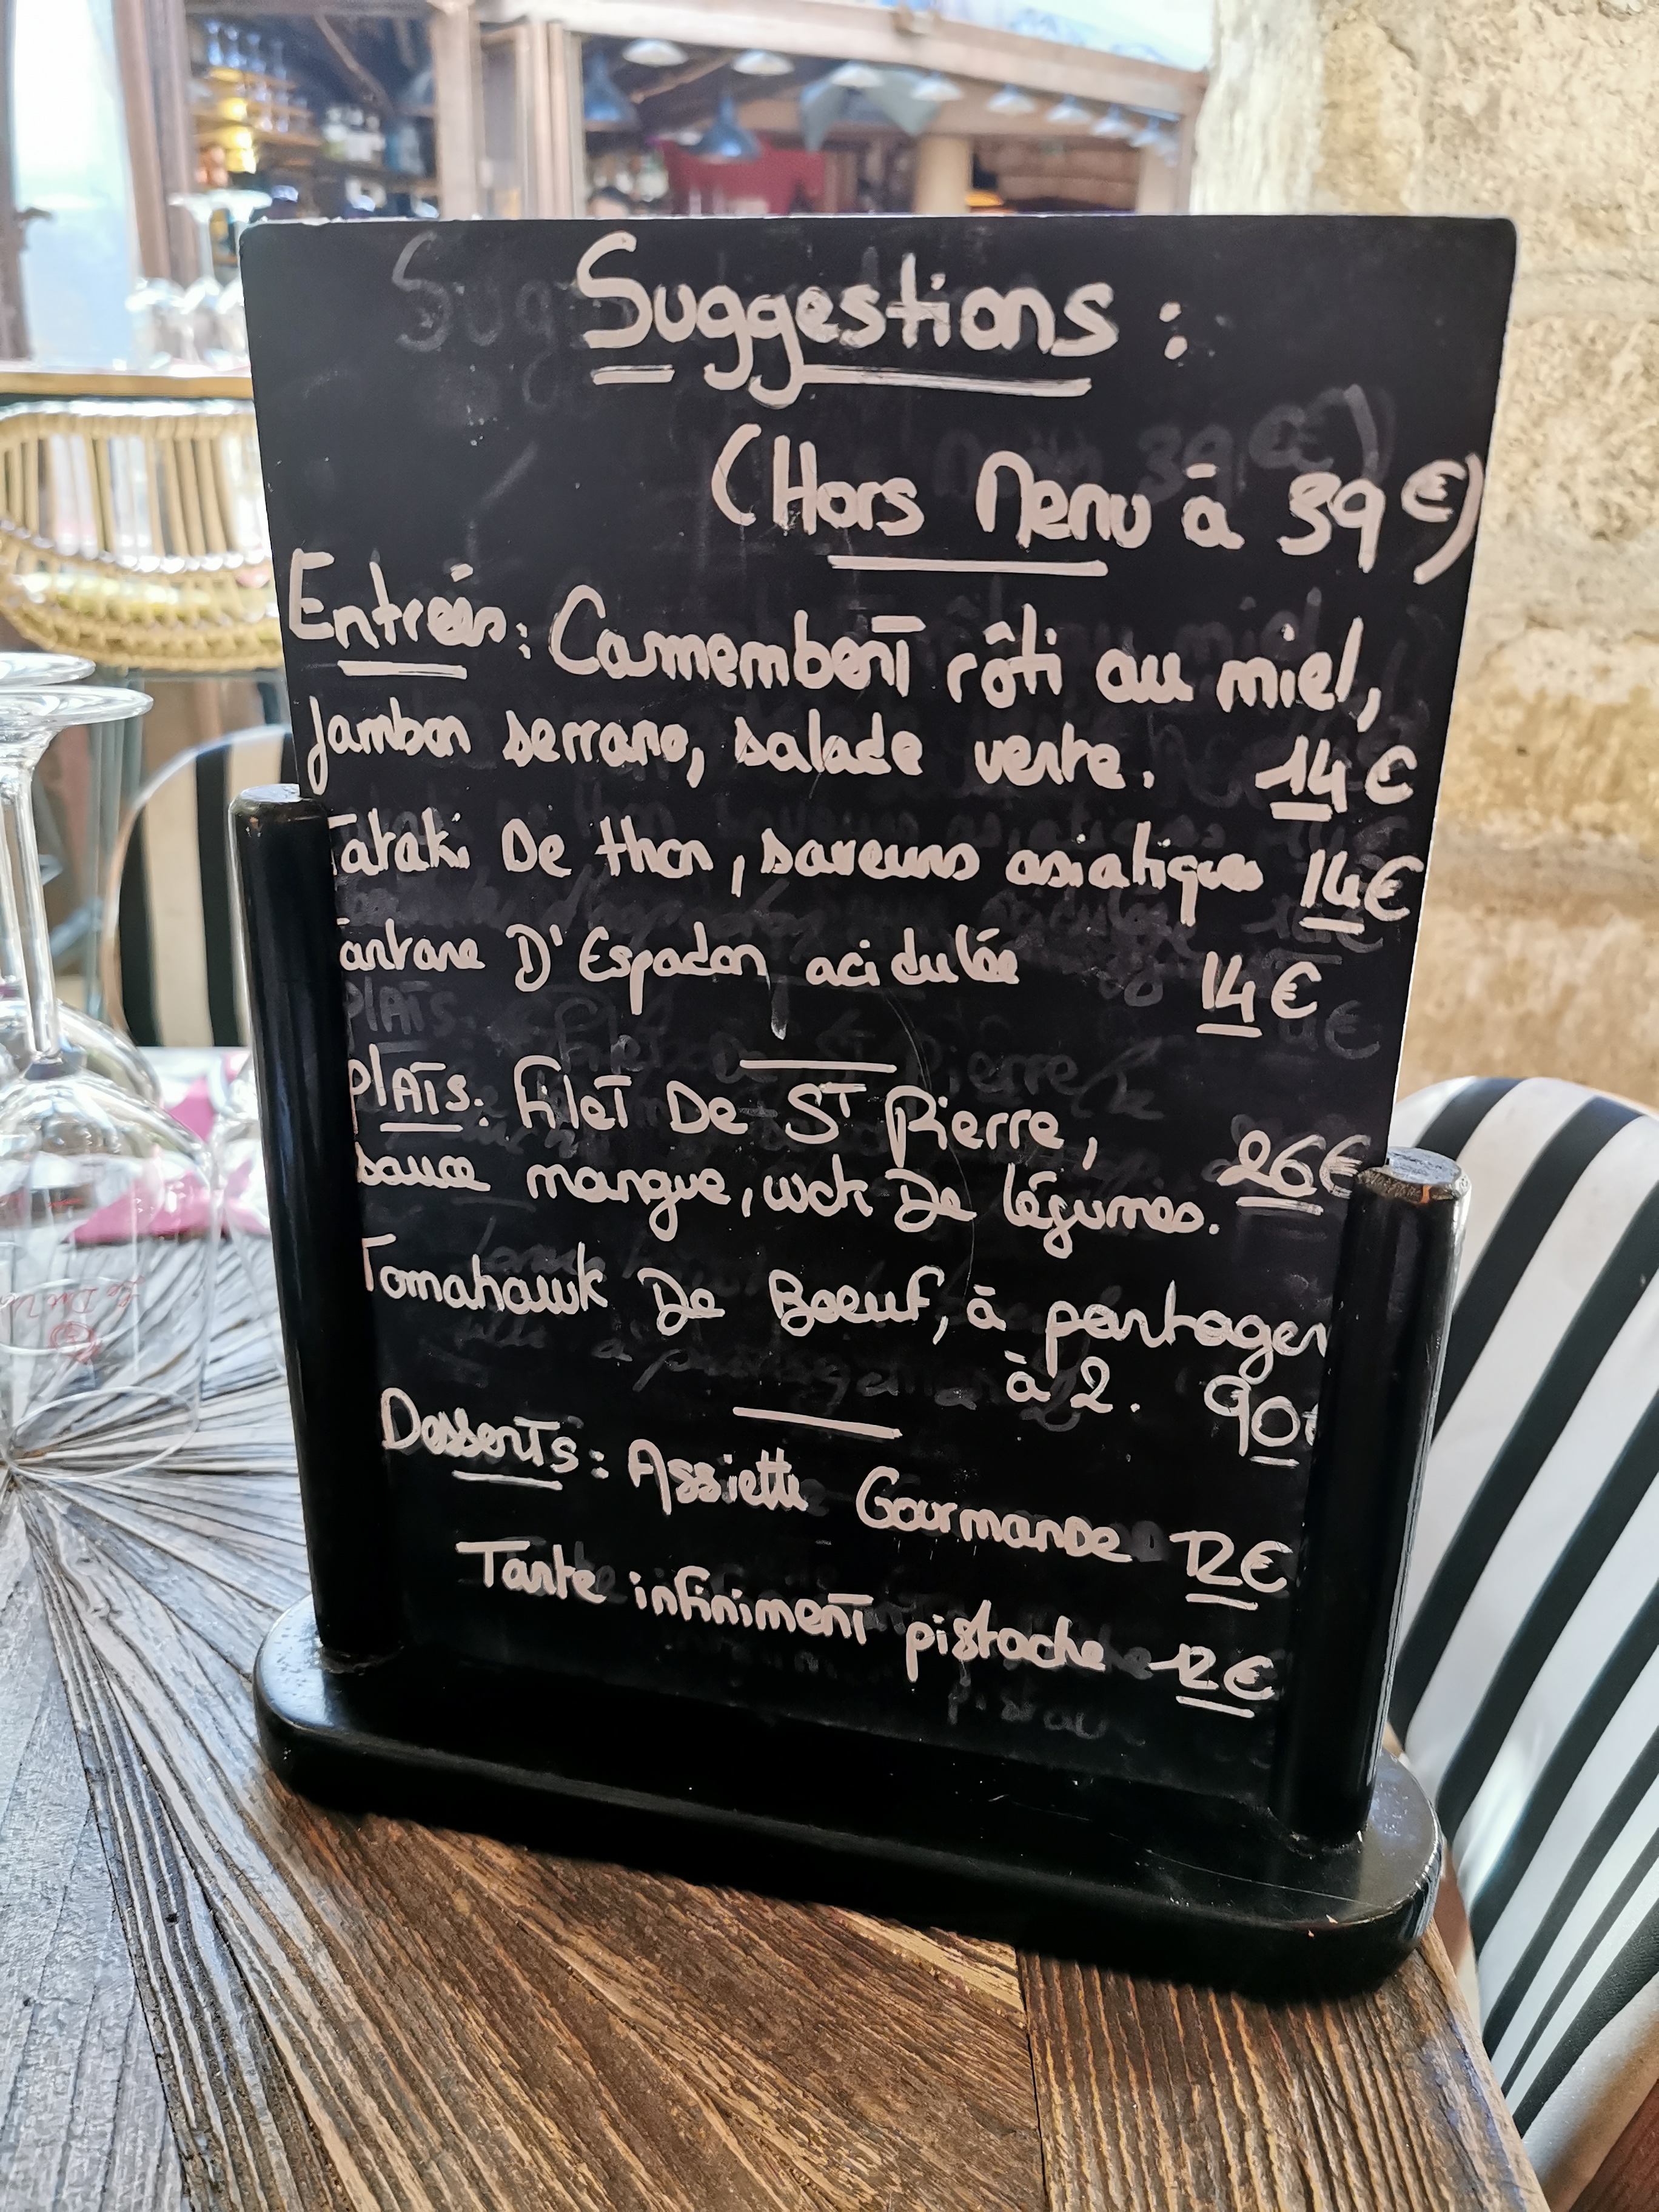 Suggestions :
(Hors Menu à 39€)
Entrées : Camembert rôti au miel,
Jambon serrano, salade verte. 14€
Tataki De thon, saveurs asiatiques 14€
Tartare D'Espadon acidulée 14€
Plats. Filet De St Pierre, 26€
sauce mangue, wok De légumes.
Tomahawk De Boeuf, à partager
à 2. 90€
Desserts : Assiette Gourmande 12€
Tarte infiniment pistache 12€